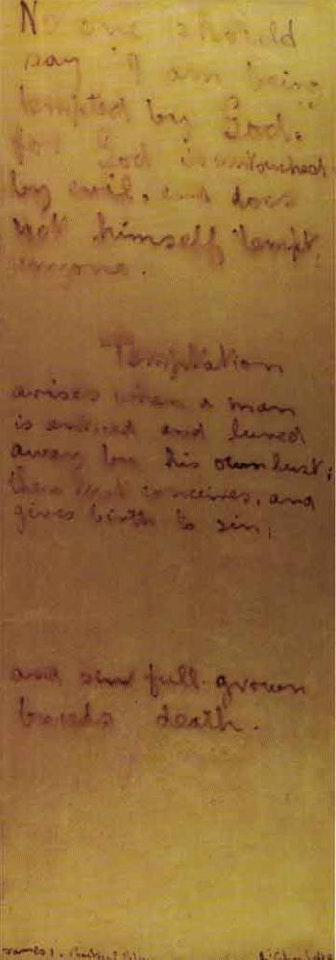 No one should
say "I am being
tempted by God."
for God is untouched
by evil, and does
not himself tempt
anyone.
Temptation
arises when a man
is enticed and lured
away by his own lust;
then lust conceives, and
gives birth to sin,
and sin full-grown
breeds death.
James 1.